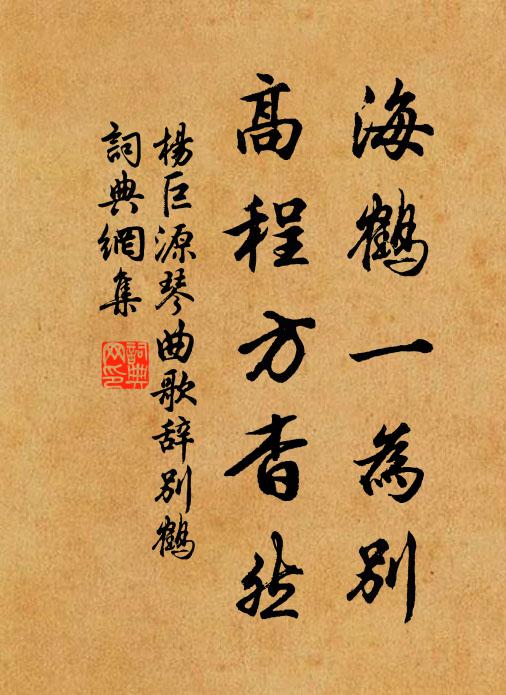 海鶴一為別
高程方杳然
楊巨源琴曲歌辞別鶴
詞典網集
詞典网印